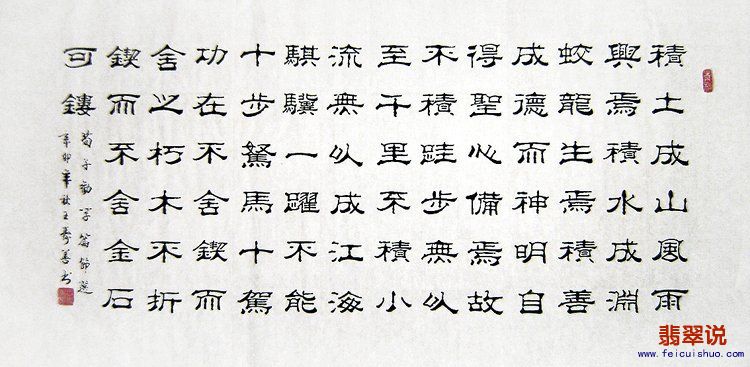 積土成山風雨
興焉積水成淵
蛟龍生焉積善
成德而神明自
得聖心備焉故
不積跬步無以
至千里不積小
流無以成江海
騏驥一躍不能
十步駑馬十駕
功在不舍鍥而
舍之朽木不折
鍥而不舍金石
可鏤
荀子勸学篇節選
辛卯年秋王壽善书
翡翠说
www.feicuishuo.com